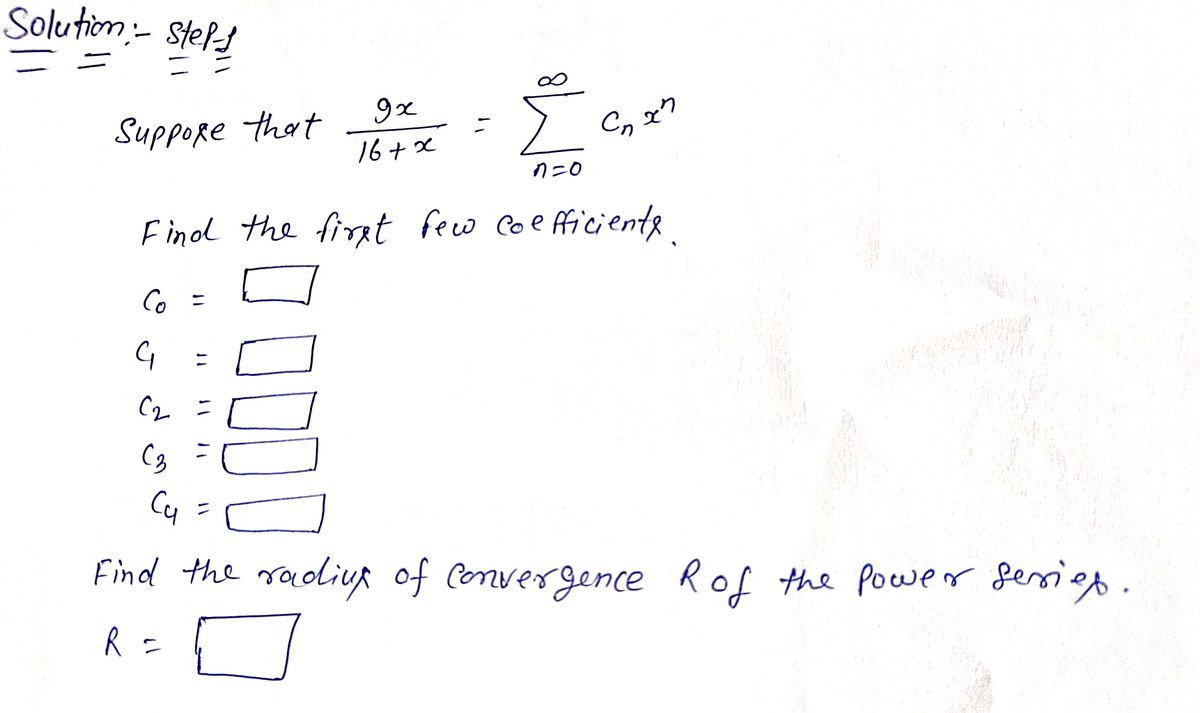 Solution:- Step-1
Suppose that 9x/(16+x) = ∑_{n=0}^{∞} Cₙ xⁿ
Find the first few coefficients.
C₀ =
C₁ =
C₂ =
C₃ =
C₄ =
Find the radius of Convergence R of the power series.
R =